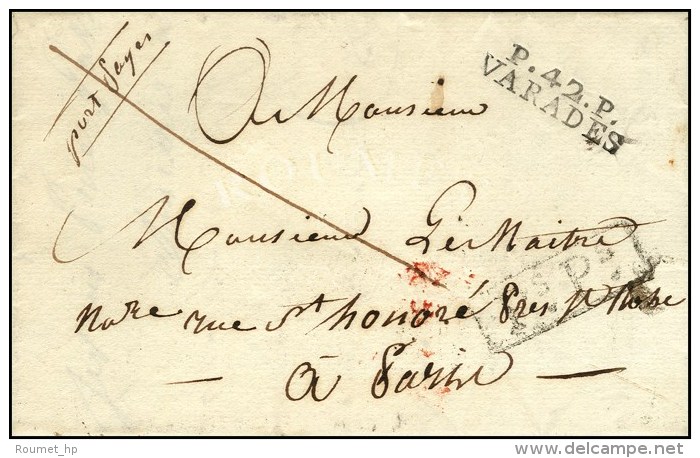 port Payer
P.42.P.
VARADES
A Monsieur
Monsieur Le Maitre
Nore rue St honoré Pres St Roc
— à Paris —
P.P.
Roumet_hp
© delcampe.net